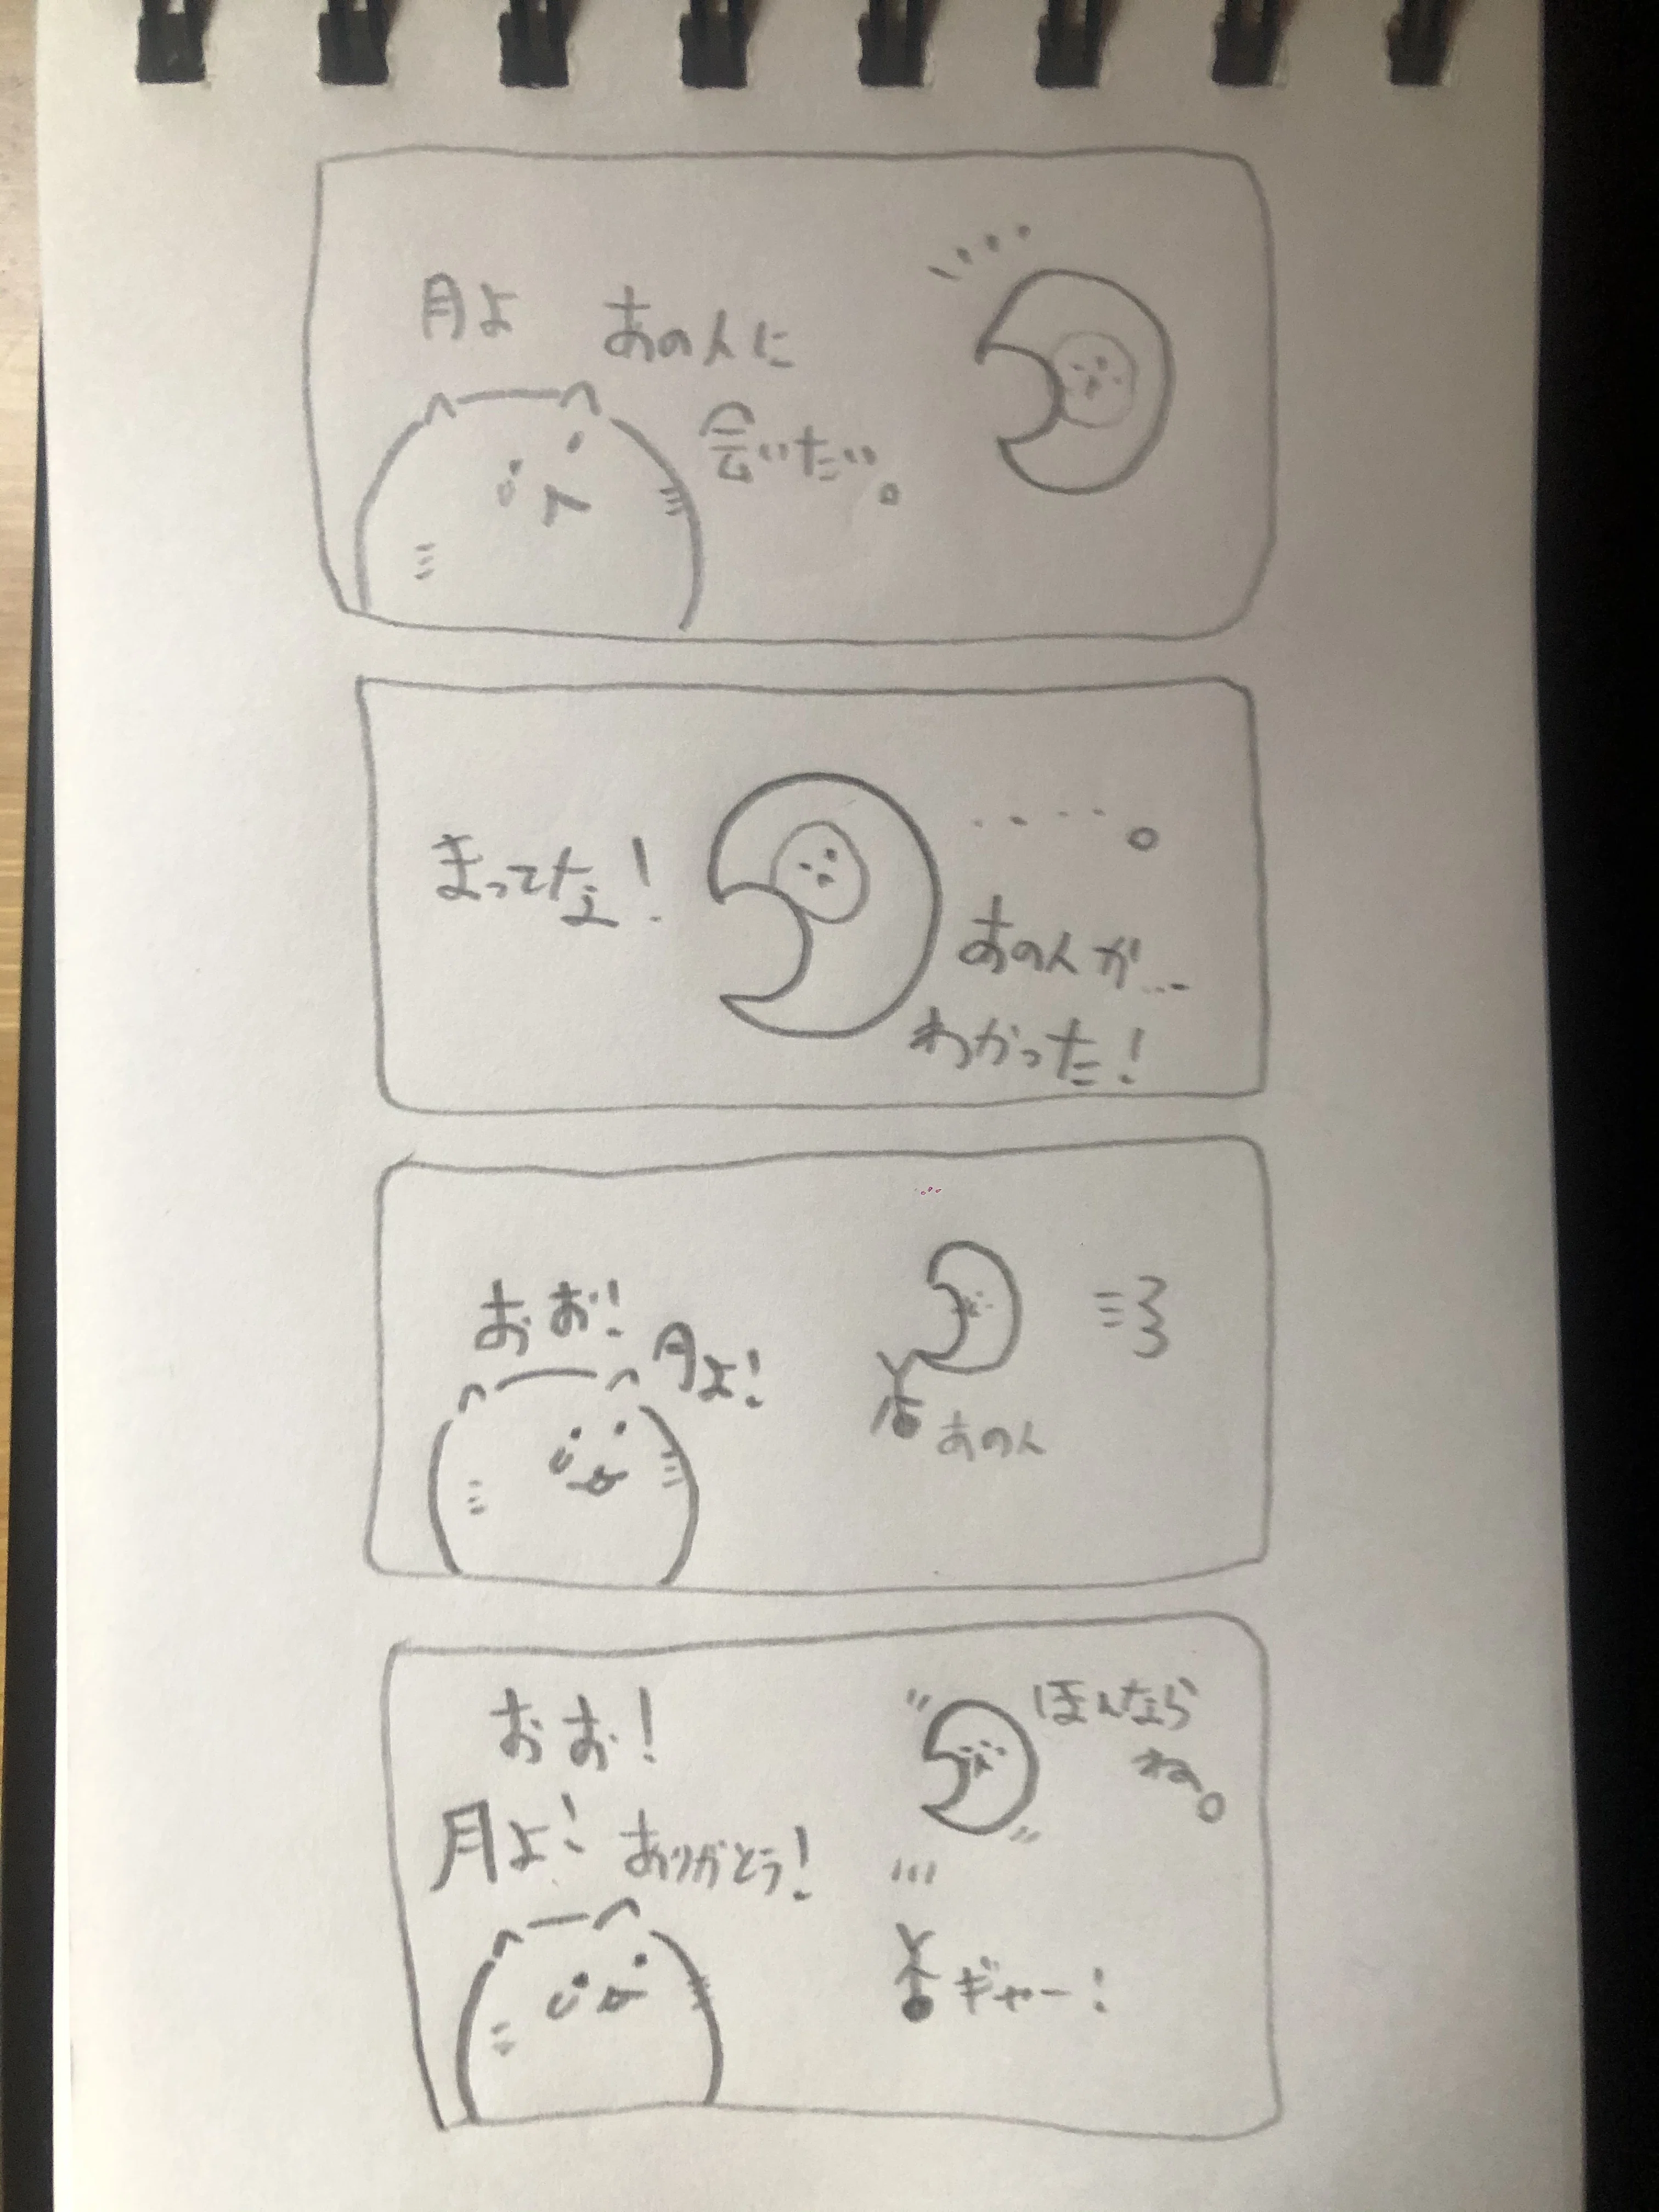 月よ
あの人に
会いたい。
まってな!
・・・・。
あの人が…
わかった!
おお!
月よ!
あの人
おお!
月よ!
ありがとう!
ほんなら
ね。
ギャー!